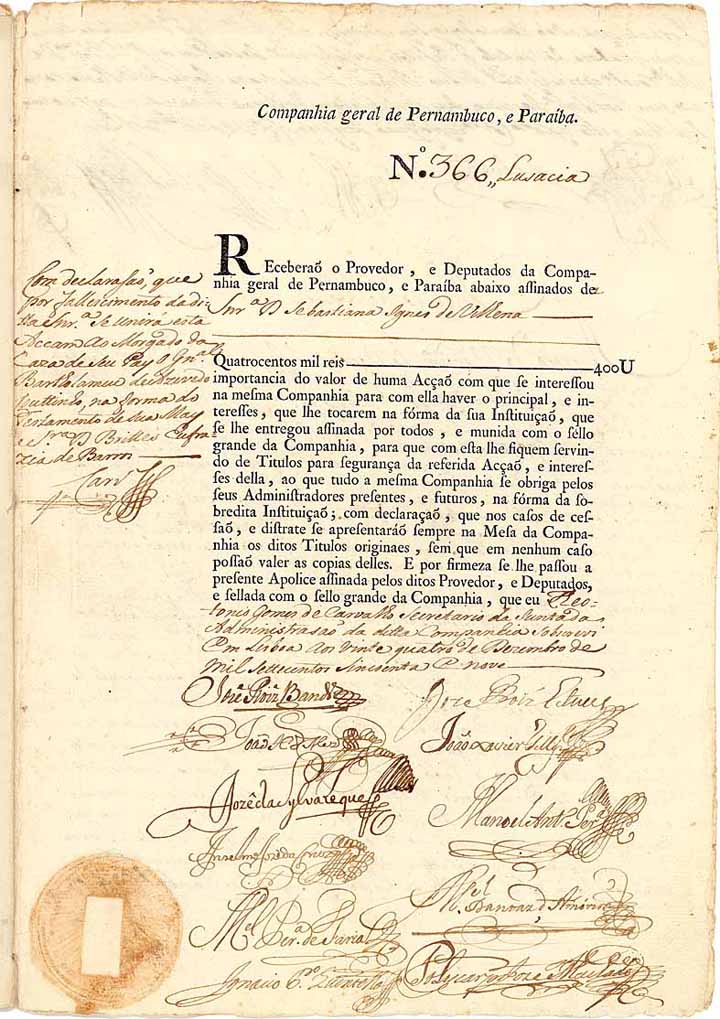 Companhia geral de Pernambuco, e Paraíba.
Nº. 366,, Lusacia
REceberaõ o Provedor, e Deputados da Compa-
nhia geral de Pernambuco, e Paraíba abaixo aſſinados de
Snrª D Sebastiana Ignes de Vilhena
Quatrocentos mil reis 400U
importancia do valor de huma Acçaõ com que ſe intereſſou
na meſma Companhia para com ella haver o principal, e in-
tereſſes, que lhe tocarem na fórma da ſua Inſtituiçaõ, que
ſe lhe entregou aſſinada por todos, e munida com o ſello
grande da Companhia, para que com eſta lhe fiquem ſervin-
do de Titulos para ſegurança da referida Acçaõ, e intereſ-
ſes della, ao que tudo a meſma Companhia ſe obriga pelos
ſeus Adminiſtradores preſentes, e futuros, na fórma da ſo-
bredita Inſtituiçaõ; com declaraçaõ, que nos caſos de ceſ-
ſaõ, e diſtrate ſe apreſentaráõ ſempre na Meſa da Compa-
nhia os ditos Titulos originaes, ſem que em nenhum caſo
poſſaõ valer as copias delles. E por firmeza ſe lhe paſſou a
preſente Apolice aſſinada pelos ditos Provedor, e Deputados,
e ſellada com o ſello grande da Companhia, que eu Theo-
tonio Gomes de Carvalho Secretario da Junta da
Administrasaõ da ditta Companhia sobscrevi
Em Lisboa aos vinte quatro de Dezembro de
Mil Settecentos sincoenta e nove
Com declarasaõ, que
por fallescimento da di-
tta Snrª. se unirá esta
Accam ao Morgado da
Caza de seu Pay o
Bartholameu de Azevedo
Couttinho, na forma do
Testamento de sua May
D Brittes Eufra
zia de Barros
Carvº
Jozé Roiz Bandrª
Joze Roiz Esteves
Joaõ
Joaõ Xavier Telles
Jozé da Sylva Leque
Manoel Antº. Perª
Anselmo Jozé da Cruz
Mel Dantas d Amorim
Mel Perª. de Faria
Ignacio Pº Quintella
Policarpo Joze Machado